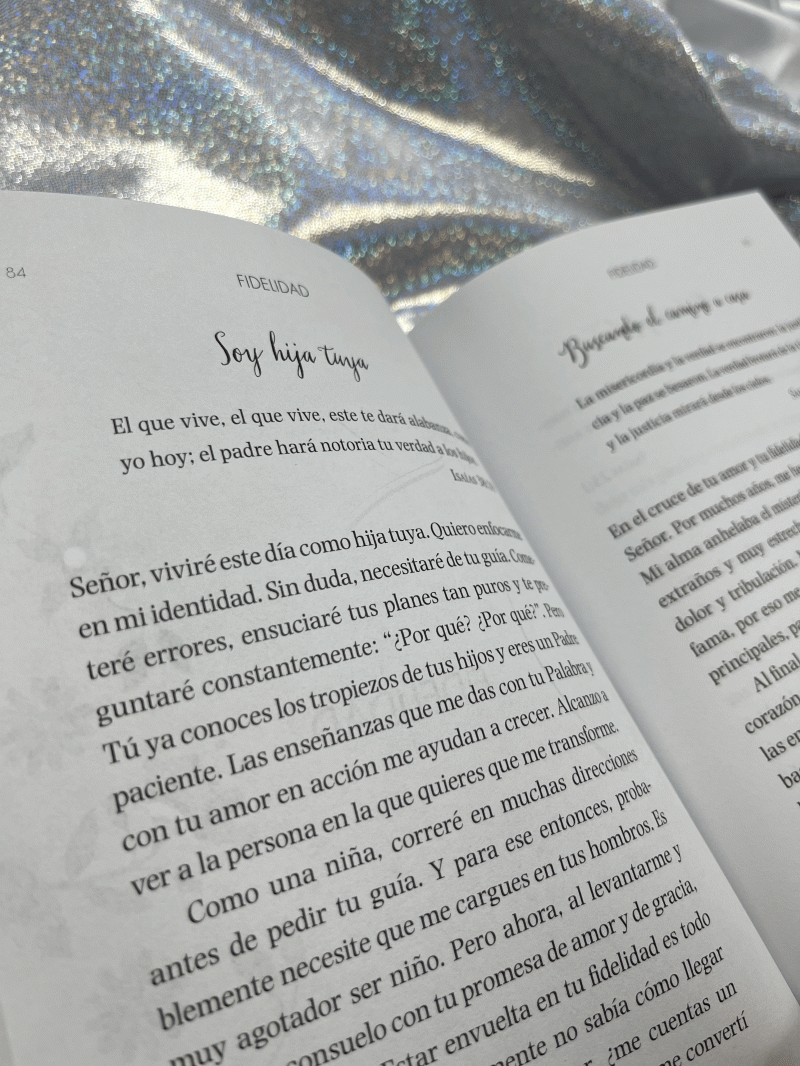 84
FIDELIDAD
Soy hija tuya
El que vive, el que vive, este te dará alabanza,
yo hoy; el padre hará notoria tu verdad a los hijos
Isaías
Señor, viviré este día como hija tuya. Quiero enfocarme
en mi identidad. Sin duda, necesitaré de tu guía. Come-
teré errores, ensuciaré tus planes tan puros y te pre-
guntaré constantemente: “¿Por qué? ¿Por qué?”. Pero
Tú ya conoces los tropiezos de tus hijos y eres un Padre
paciente. Las enseñanzas que me das con tu Palabra y
con tu amor en acción me ayudan a crecer. Alcanzo a
ver a la persona en la que quieres que me transforme.
Como una niña, correré en muchas direcciones
antes de pedir tu guía. Y para ese entonces, proba-
blemente necesite que me cargues en tus hombros. Es
muy agotador ser niño. Pero ahora, al levantarme y
consuelo con tu promesa de amor y de gracia,
Estar envuelta en tu fidelidad es todo
mente no sabía cómo llegar
¿me cuentas un
me convertí
FIDELIDAD
Buscando el camino a casa
La misericordia y la verdad se encontraron; la
cia y la paz se besaron. La verdad brotará de la
y la justicia mirará desde los cielos.
En el cruce de tu amor y tu fidelidad
Señor. Por muchos años, me
Mi alma anhelaba el
extraños y muy
dolor y tribulación.
fama, por eso me
principales,
Al final
corazón
las